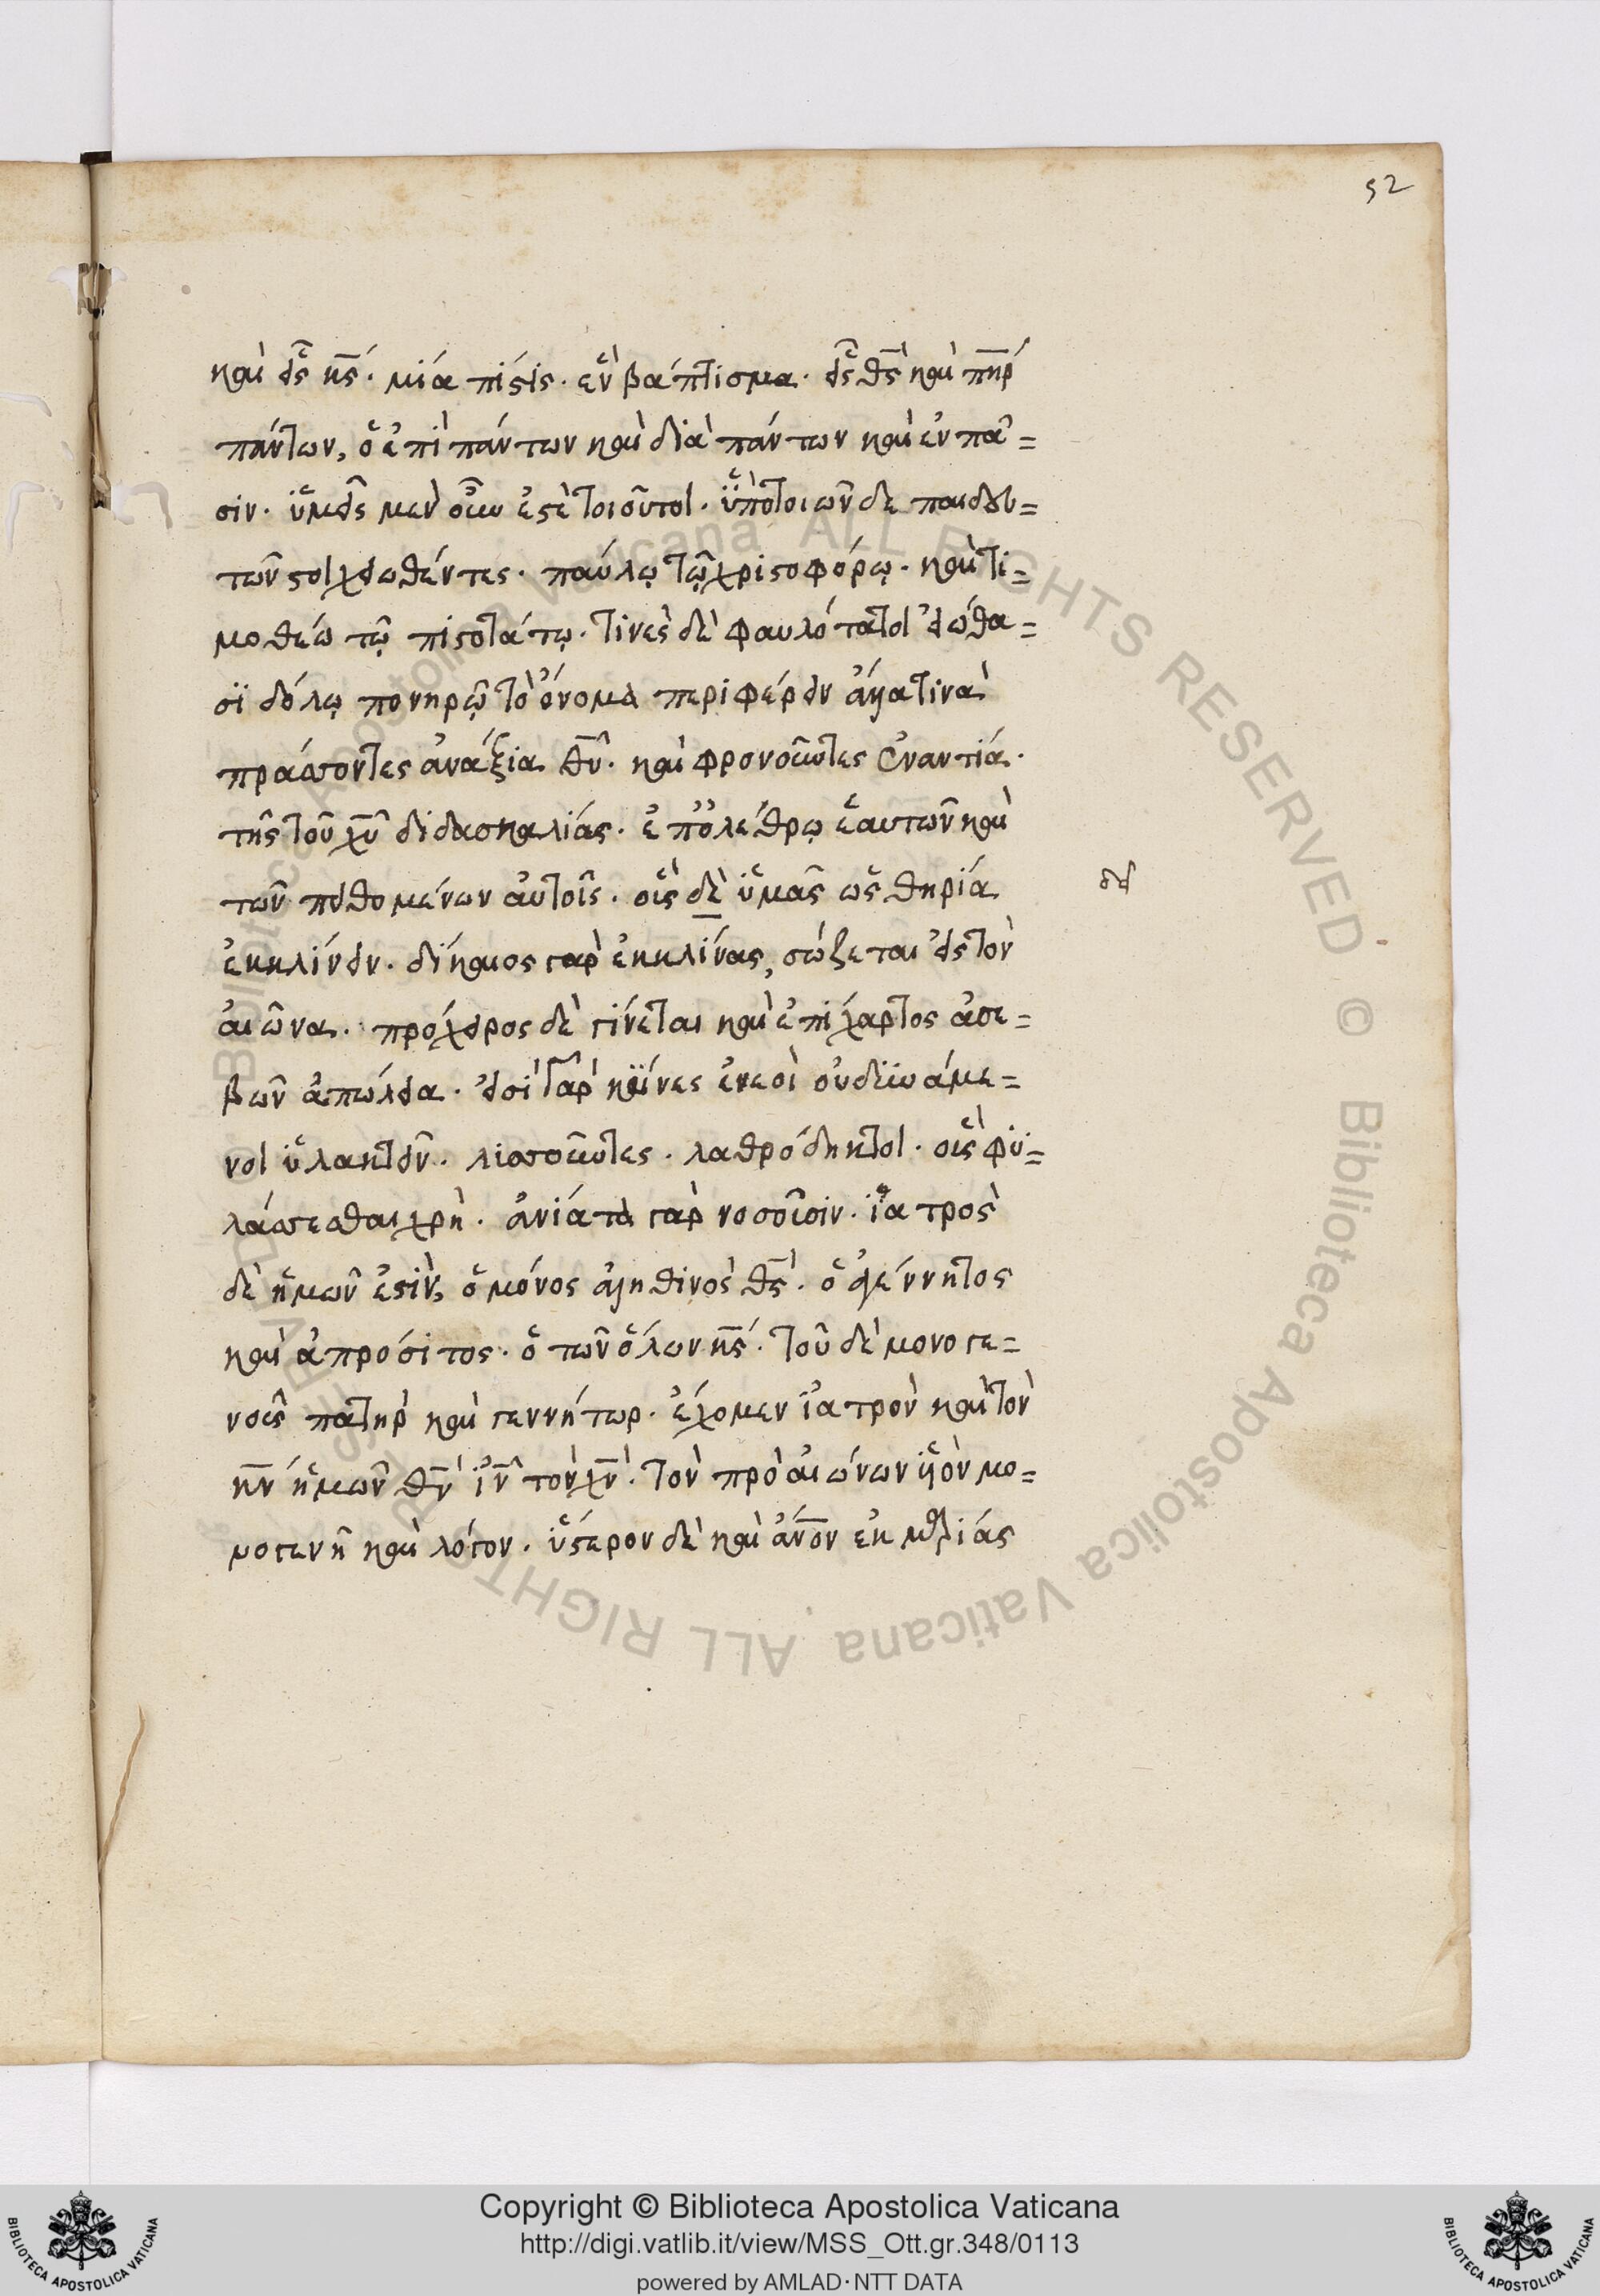 52
καὶ εἷς κ̅ς́. μία πίστις. ἓν βάπτισμα. εἷς θ̅ς̀ καὶ π̅η̅ρ́
πάντων, ὁ ἐπὶ πάντων καὶ διὰ πάντων καὶ ἐν πᾶ=
σιν. ὑμεῖς μὲν οὖν ἐστὲ τοιοῦτοι. ὑπὸ τοιῶν δε παιδευ=
τῶν στοιχειωθέντες. παύλῳ τῷ χριστοφόρῳ. καὶ τι=
μοθέω τῷ πιστοτάτῳ. τινὲς δὲ φαυλότατοι εἰώθα=
σϊ δόλῳ πονηρῷ τὸ ὄνομα περιφέρειν ἄλλα τινὰ
πράσσοντες ἀνάξια θ̅υ̅. καὶ φρονοῦντες ἐναντία.
τῆς τοῦ χ̅υ̅ διδασκαλίας. ἐπ' ὀλέθρῳ ἑαυτῶν καὶ
τῶν πειθομένων αὐτοῖς. οὓς δεῖ ὑμᾶς ὡς θηρία
ει
ἐκκλίνειν. δίκαιος γαρ ἐκκλίνας, σώζεται εἰς τὸν
αἰῶνα. πρόχειρος δὲ γίνεται καὶ ἐπίχαρτος ἀσε=
βῶν ἀπώλεια. εἰσὶ γὰρ κύνες ἐνεοὶ οὐ δυνάμε=
νοι ὑλακτεῖν. λισσῶντες. λαθρόδηκτοι. οὓς φυ=
λάσσεσθαι χρή. ἀνίατα γὰρ νοσοῦσιν. ἰατρὸς
δὲ ἡμῶν ἐστὶν, ὁ μόνος ἀληθινὸς θ̅ς̀. ὁ ἀγέννητος
καὶ ἀπρόσιτος. ὁ τῶν ὅλων κ̅ς́. τοῦ δὲ μονογε=
νοῦς πατὴρ καὶ γεννήτωρ. ἔχομεν ἰατρὸν καὶ τὸν
κ̅ν́ ἡμῶν θ̅ν̀ ἰ̅ν̅ τὸν χ̅ν̀. τὸν πρὸ αἰώνων υἱὸν μο=
νογενῆ καὶ λόγον. ὕστερον δὲ καὶ ἄν̅ον ἐκ μαρίας
Copyright © Biblioteca Apostolica Vaticana
http://digi.vatlib.it/view/MSS_Ott.gr.348/0113
powered by AMLAD·NTT DATA